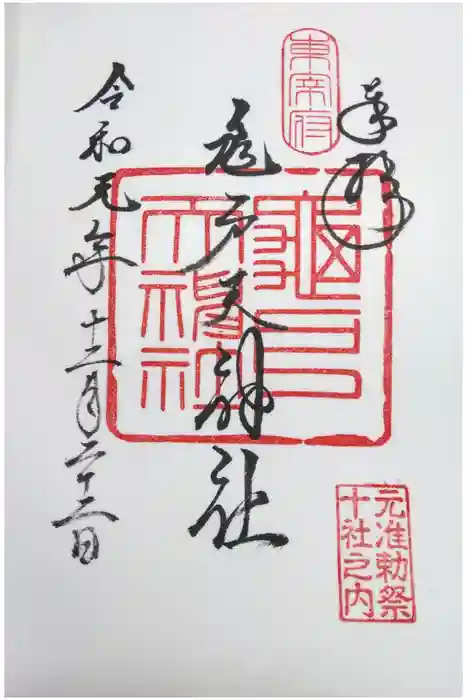 奉拝
東宰府
亀戸天神社
亀戸
天神社
令和元年十二月二十二日
元准勅祭
十社之内